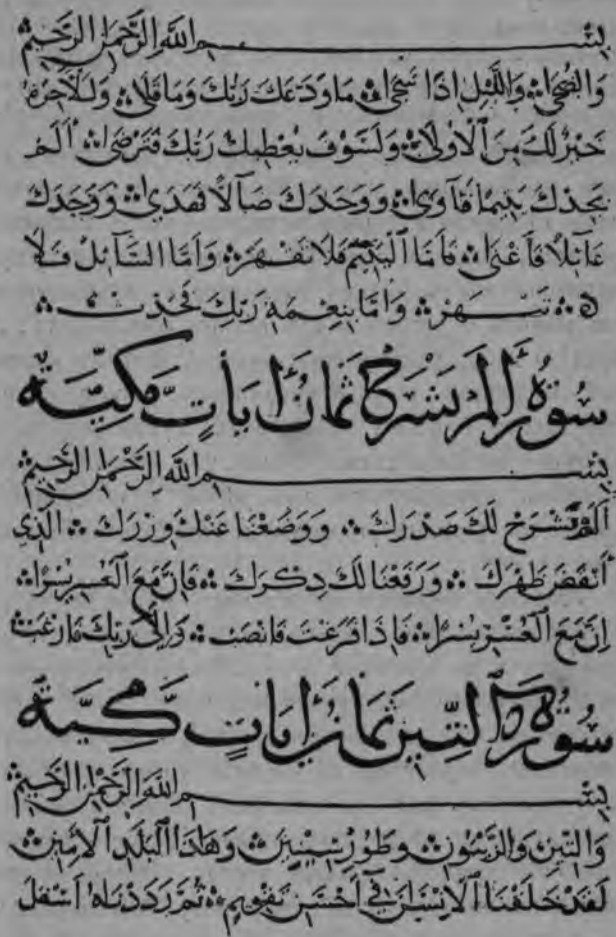 بِسْمِ اللهِ الرَّحْمٰنِ الرَّحِيمِ
وَالضُّحَىٰ وَاللَّيْلِ اِذَا سَجَىٰ مَا وَدَّعَكَ رَبُّكَ وَمَا قَلَىٰ وَلَلْآخِرَةُ
خَيْرٌ لَكَ مِنَ ٱلْاُولَىٰ وَلَسَوْفَ يُعْطِيكَ رَبُّكَ فَتَرْضَىٰ اَلَمْ
يَجِدْكَ يَتِيمًا فَآوَىٰ وَوَجَدَكَ ضَآلًّا فَهَدَىٰ وَوَجَدَكَ
عَآئِلًا فَاَغْنَىٰ فَاَمَّا ٱلْيَتِيمَ فَلَا تَقْهَرْ وَاَمَّا ٱلسَّآئِلَ فَلَا
تَنْهَرْ وَاَمَّا بِنِعْمَةِ رَبِّكَ فَحَدِّثْ
سُورَةُ اَلَمْ نَشْرَحْ ثَمَانُ اٰيَاتٍ مَكِّيَّة
بِسْمِ اللهِ الرَّحْمٰنِ الرَّحِيمِ
اَلَمْ نَشْرَحْ لَكَ صَدْرَكَ وَوَضَعْنَا عَنْكَ وِزْرَكَ الَّذِي
اَنْقَضَ ظَهْرَكَ وَرَفَعْنَا لَكَ ذِكْرَكَ فَاِنَّ مَعَ ٱلْعُسْرِ يُسْرًا
اِنَّ مَعَ ٱلْعُسْرِ يُسْرًا فَاِذَا فَرَغْتَ فَانْصَبْ وَاِلَىٰ رَبِّكَ فَارْغَبْ
سُورَةُ ٱلتِّينِ ثَمَانُ اٰيَاتٍ مَكِّيَّة
بِسْمِ اللهِ الرَّحْمٰنِ الرَّحِيمِ
وَالتِّينِ وَالزَّيْتُونِ وَطُورِ سِينِينَ وَهٰذَا ٱلْبَلَدِ ٱلْاَمِينِ
لَقَدْ خَلَقْنَا ٱلْاِنْسَانَ فِي اَحْسَنِ تَقْوِيمٍ ثُمَّ رَدَدْنَاهُ اَسْفَلَ